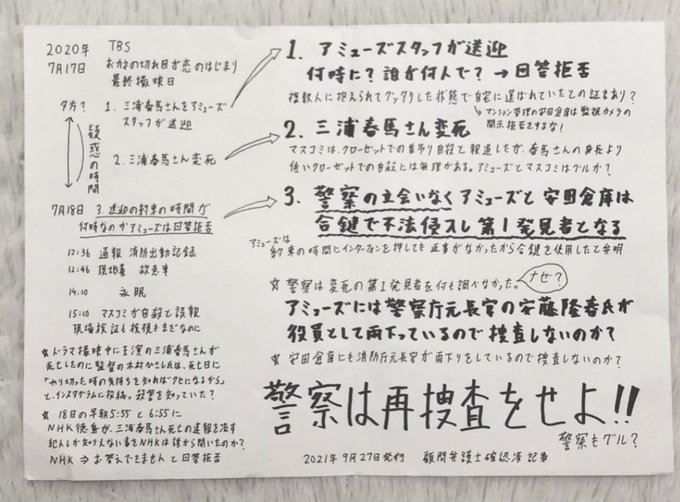 2020年 TBS
7月17日 おカネの切れ目が恋のはじまり
最終撮影日
夕方?
1. 三浦春馬さんをアミューズ
スタッフが送迎
疑惑の時間
2. 三浦春馬さん変死
7月18日 3. 送迎の約束の時間が
何時なのかアミューズは回答拒否
12:36 通報 消防出動記録
12:46 現場着 救急車
14:10 永眠
15:10 マスコミが自殺と誤報
現場検証も検視もまだなのに
☆ドラマ撮影中に主演の三浦春馬さんが
死亡したのに監督の木村ひさし氏は、死亡日に
「やり切った時の気持ちを知ればクセになるから」
と、インスタグラムに投稿。殺害を知っていた?
☆ 18日の早朝5:55 と 6:55に
NHK徳島が、三浦春馬さん死亡の速報を流す
犯人しか知りえない事をNHKは誰から聞いたのか?
NHK ⇒ お答えできませんと回答拒否
1. アミューズスタッフが送迎
何時に? 誰が何人で? → 回答拒否
複数人に抱えられてグッタリした状態で自宅に運ばれていたとの証言あり?
マンション管理の安田倉庫は監視カメラの
開示拒否をするな!
2. 三浦春馬さん変死
マスコミは、クローゼットでの首吊り自殺と報道したが、春馬さんの身長より
低いクローゼットでの自殺には無理がある。アミューズとマスコミはグルか?
3. 警察の立会いなくアミューズと安田倉庫は
合鍵で不法侵入し第1発見者となる
アミューズは
約束の時間にインターフォンを押しても返事がなかったから合鍵を使用したと弁明
☆ 警察は変死の第1発見者を何も調べなかった。ナゼ?
アミューズには警察庁元長官の安藤隆春氏が
役員として天下っているので捜査しないのか?
☆ 安田倉庫にも消防庁元長官が天下りをしているので捜査しないのか?
警察は再捜査をせよ!!
警察もグル?
2021年9月27日発行 顧問弁護士確認済記事